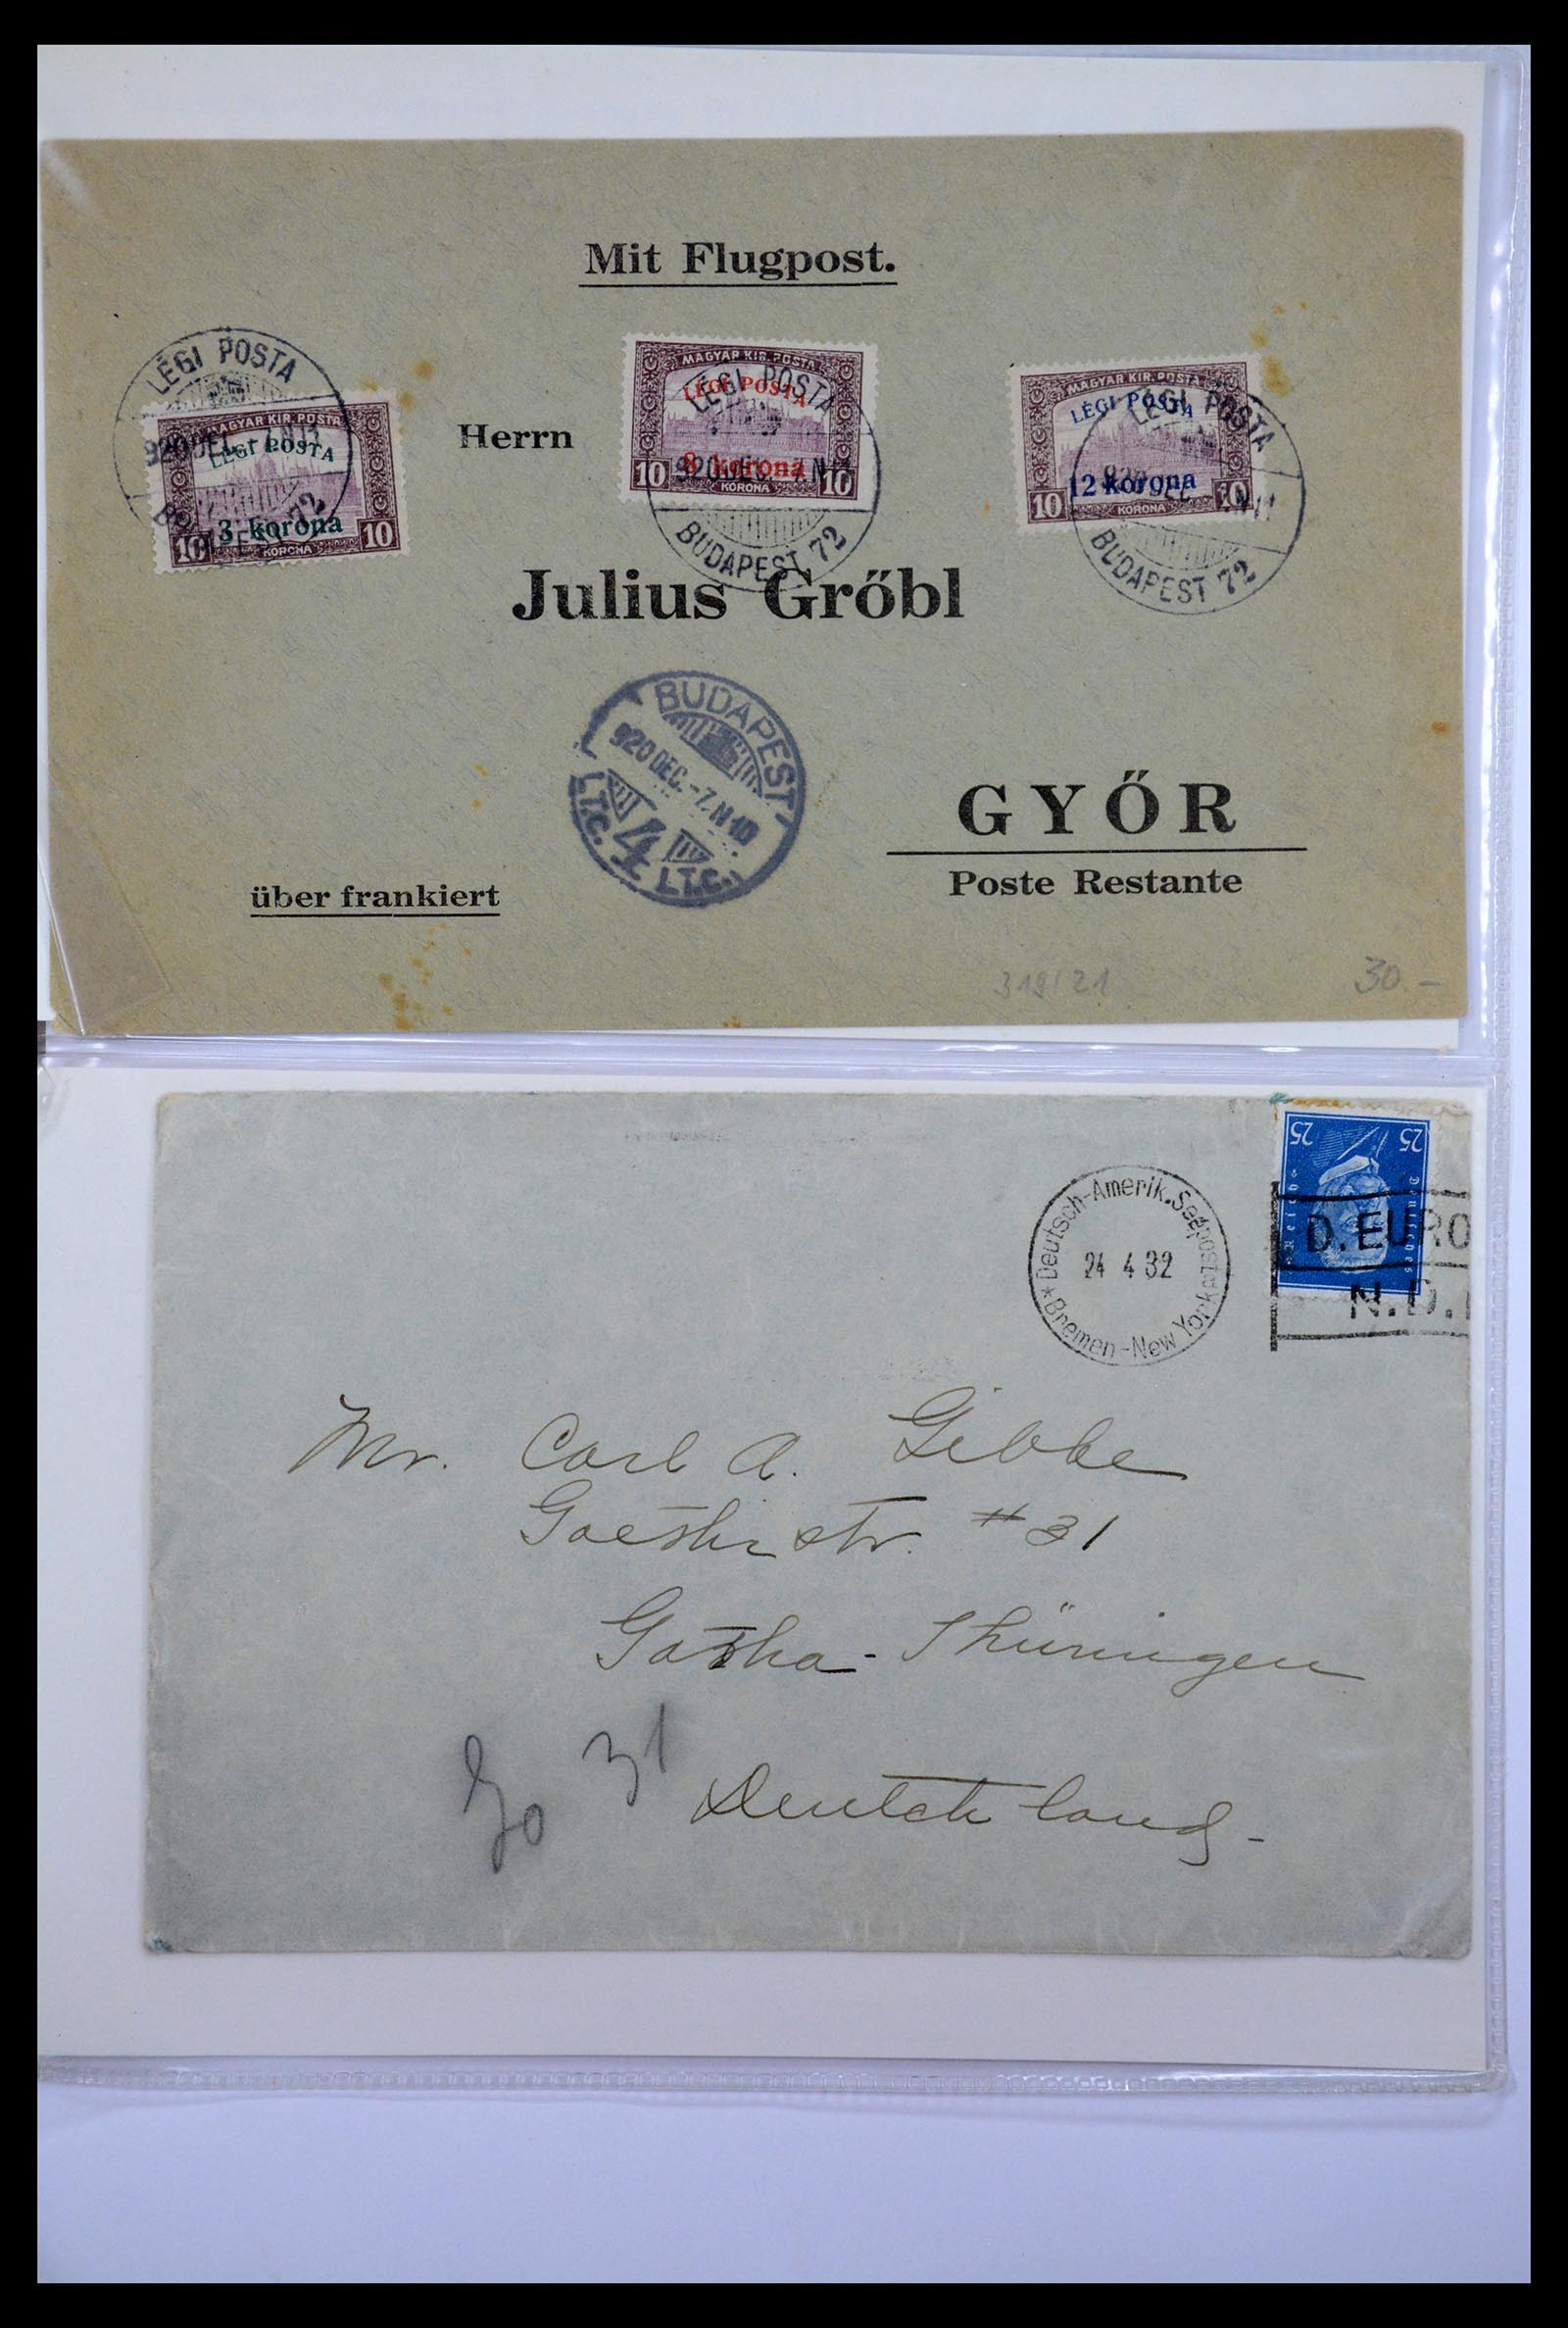 Mit Flugpost.
LÉGI POSTA
920 DEC. -7. N
BUDAPEST 72
MAGYAR KIR. POSTA
LÉGI POSTA
3 korona
10 KORONA 10
Herrn
MAGYAR KIR. POSTA
LÉGI POSTA
8 korona
10 KORONA 10
LÉGI POSTA
920 DEC. -7. N
BUDAPEST 72
MAGYAR KIR. POSTA
LÉGI POSTA
12 korona
10 KORONA 10
LÉGI POSTA
920 DEC
BUDAPEST 72
Julius Grőbl
BUDAPEST
920 DEC. -7. N 10
4
(T.C. I.T.C.)
GYŐR
Poste Restante
über frankiert
319/21
30.-
25 25
Deutsches Reich
Deutsch-Amerik. Seepost
24 4 32
* Bremen-New York
D. EURO
N.D.
Mr. Carl A. Gibbe
Goethe str. #31
Gotha - Thüringen
Go 31
Deutchland -